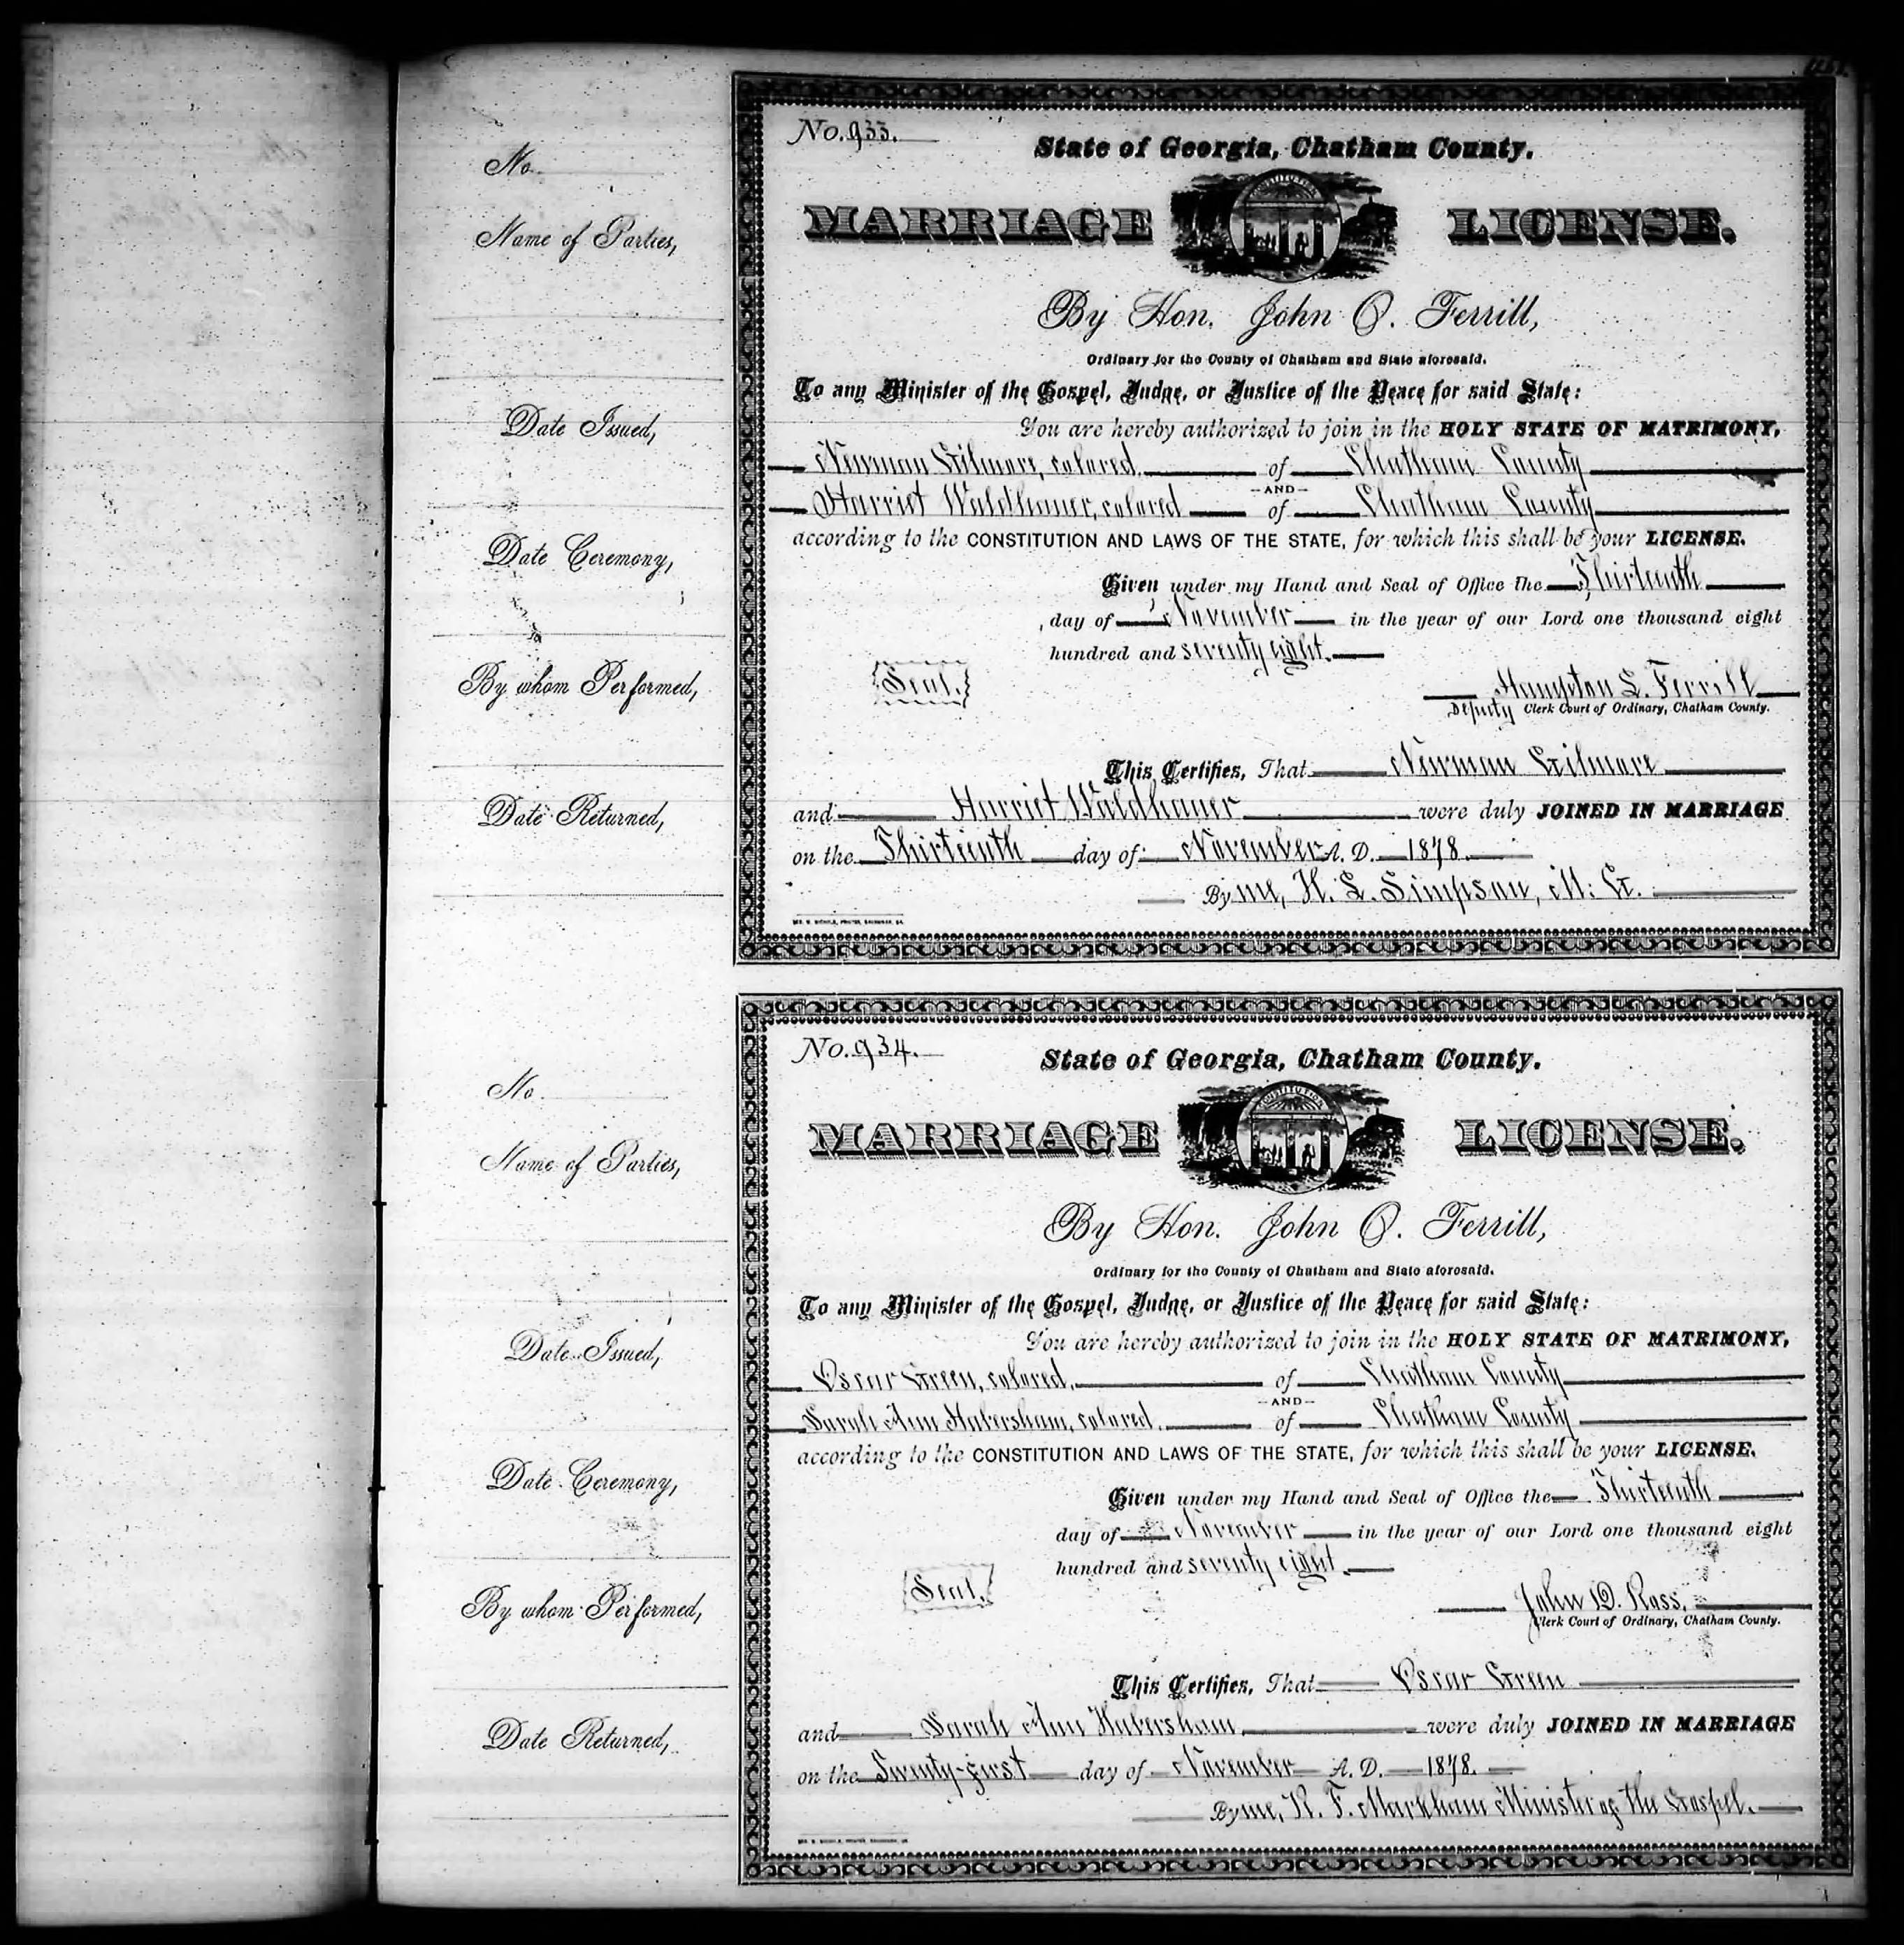 No. 933.
State of Georgia, Chatham County.
CONSTITUTION
MARRIAGE LICENSE.
By Hon. John O. Ferrill,
Ordinary for the County of Chatham and State aforesaid.
To any Minister of the Gospel, Judge, or Justice of the Peace for said State:
You are hereby authorized to join in the HOLY STATE OF MATRIMONY,
Newman Gilmore, colored. of Chatham County
-AND-
Harriet Waldhauer, colored of Chatham County
according to the CONSTITUTION AND LAWS OF THE STATE, for which this shall be your LICENSE.
Given under my Hand and Seal of Office the Thirteenth
day of November in the year of our Lord one thousand eight
hundred and seventy eight.
Seal.
Hampton L. Ferrill
Deputy Clerk Court of Ordinary, Chatham County.
This Certifies, That Newman Gilmore
and Harriet Waldhauer were duly JOINED IN MARRIAGE
on the Thirteenth day of November A. D. 1878.
By me, H. L. Simpson, M. G.
GEO. N. NICHOLS, PRINTER, SAVANNAH, GA.
No.
Name of Parties,
Date Issued,
Date Ceremony,
By whom Performed,
Date Returned,
No. 934.
State of Georgia, Chatham County.
CONSTITUTION
MARRIAGE LICENSE.
By Hon. John O. Ferrill,
Ordinary for the County of Chatham and State aforesaid.
To any Minister of the Gospel, Judge, or Justice of the Peace for said State:
You are hereby authorized to join in the HOLY STATE OF MATRIMONY,
Oscar Green, colored. of Chatham County
-AND-
Sarah Ann Habersham, colored. of Chatham County
according to the CONSTITUTION AND LAWS OF THE STATE, for which this shall be your LICENSE.
Given under my Hand and Seal of Office the Thirteenth
day of November in the year of our Lord one thousand eight
hundred and seventy eight.
Seal.
John D. Ross.
Clerk Court of Ordinary, Chatham County.
This Certifies, That Oscar Green
and Sarah Ann Habersham were duly JOINED IN MARRIAGE
on the Twenty-first day of November A. D. 1878.
By me, R. F. Markham Minister of the Gospel.
No.
Name of Parties,
Date Issued,
Date Ceremony,
By whom Performed,
Date Returned,